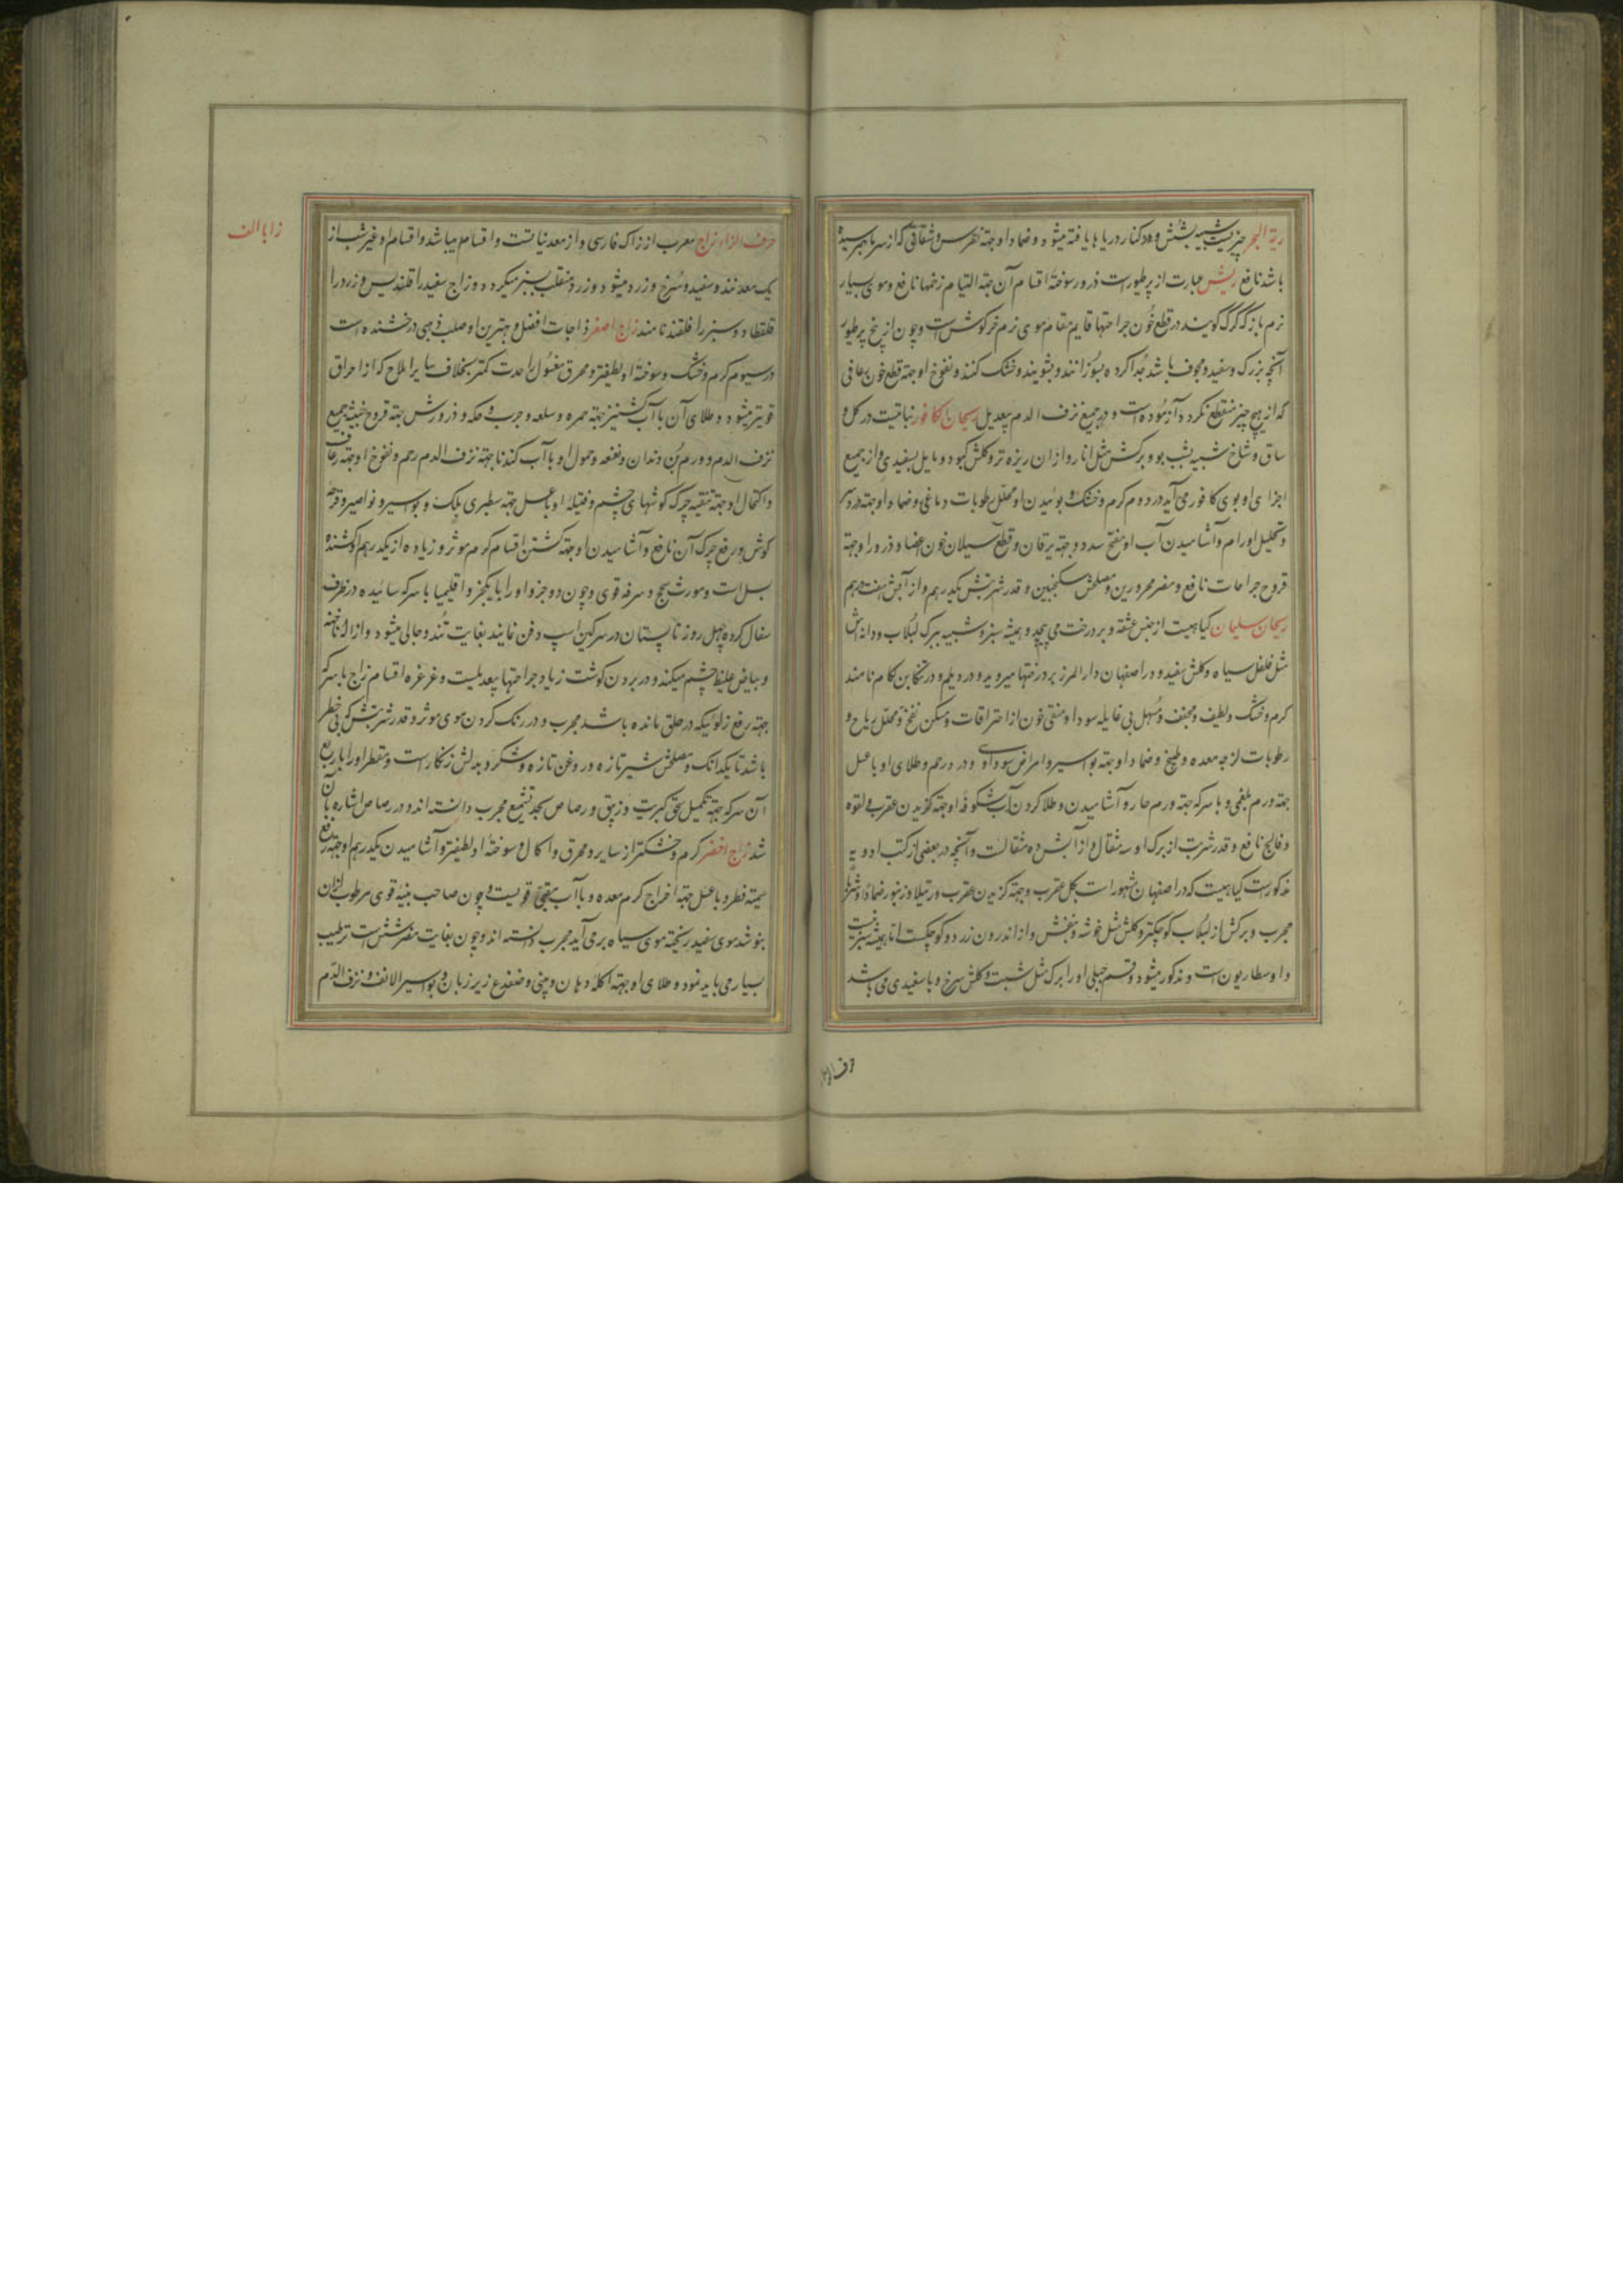 ریة البحر چیزیست شبیه بشش و در کنار دریاها یافته میشود و ضماد او جهته نقرس و شقاقی که از سرما بهم رسیده
باشد نافع ریش عبارت از پر طیور است ذرور سوختهٔ اقسام آن جهته التیام زخمها نافع و موی بسیار
نرم باز که کرک کویند در قطع خون جراحتها قایم مقام موی نرم خرکوش است و چون از بیخ پر طیور
آنچه بزرک و سفید و مجوف باشد جدا کرده بسوزانند و بشویند و خشک کنند و نفوخ او جهته قطع خون رعافی
که از هیچ چیز منقطع نکردد آزموده است و در جمیع نزف الدم بیعدیل ریحان کافور نباتیست در کل و
ساق و شاخ شبیه بشب بو و برکش مثل انار و از ان ریزه تر و کلش کبود و مایل بسفیدی و از جمیع
اجزای او بوی کافور می آید در دوم کرم و خشک و بوئیدن او محلل رطوبات دماغی و ضماد او جهته درد سر
و تحلیل اورام و آشامیدن آب او مفتح سدد و جهته یرقان و قطع سیلان خون اعضا و ذرور او جهته
قروح جراحات نافع و مضر محرورین و مصلحش سکنجبین و قدر شربتش یکدرهم و از آبش هفت درهم
ریحان سلیمان کیاهیست از جنس عشقه و بر درخت می پیچد و همیشه سبز و شبیه ببرک لبلاب و دانه اش
مثل فلفل سیاه و کلش سفید و در اصفهان دار المرز بر درختها میروید و در دیلم و در تنکابن کام نامند
کرم و خشک و لطیف و مجفف و مسهل بی غایله سودا و منقی خون از احتراقات و مسکن نفخ و محلل ریاح و
رطوبات لزجه معده و طبیخ و ضماد او جهته بواسیر و امراض سوداوی و درد رحم و طلای او با عسل
جهته ورم بلغمی و با سرکه جهته ورم حار و آشامیدن و طلا کردن آب شکوفه او جهته کزیدن عقرب و لقوه
و فالج نافع و قدر شربت از برک او سه مثقال و از آبش ده مثقالست و آنچه در بعضی از کتب ادویه
مذکورست کیاهیست که در اصفهان مشهور است بکل عقرب و جهته کزیدن عقرب و رتیلا و زنبور ضمادا و شربا
مجرب و برکش از لبلاب کوچکتر و کلش مثل خوشه و بنفش و از اندرون زرد و کوچکست اما همیشه سبز نیست
و اوسطاریون است و مذکور میشود و قسم جبلی او را برک مثل شبت و کلش سرخ و با سفیدی می باشد
حرف الزا
زا با الف
حرف الزاء زاج معرب از زاک فارسی و از معدنیاتست و اقسام میباشد و اقسام او غیر شب از
یک معدنند و سفید و سرخ و زرد میشود و زرد منقلب بسبز میکردد و زاج سفید را قلقدیس و زرد را
قلقطار و سبز را قلقند نامند زاج اصفر زاجات افضل و بهترین او صلب ذهبی درخشنده است
در سیوم کرم و خشک و سوختهٔ او لطیفتر و محرق مغسول او حدت کمتر بخلاف سایر املاح که از احراق
قویتر میشود و طلای آن با آب کشنیز جهته حمره و سلعه و جرب و حکه و ذرورش جهته قروح خبیثه جمیع
نزف الدم و ورم بن دندان و نغنغه و حمول او با آب کندنا جهته نزف الدم رحم و نفوخ او جهته رعاف
و اکتحال او جهته تنقیه چرک کوشهای چشم و فتیله او با عسل جهته سطبری پلک و بواسیر و نواصیر و قرحه
کوش و رفع چرک آن نافع و آشامیدن او جهته کشتن اقسام کرم موثر و زیاده از یکدرهم او کشنده
بسل است و مورث سحج و سرفه قوی و چون دو جزو او را با یکجزو اقلیمیا با سرکه سائیده در ظرف
سفال کرده چهل روز تابستان در سرکین اسپ دفن نمایند بغایت تند و جالی میشود و ازاله ناخنه
و بیاض غلیظ چشم میکند و در بردن کوشت زیاد جراحتها بیعدیلست و غرغره اقسام زاج با سرکه
جهته رفع زلوئیکه در حلق مانده باشد مجرب و در رنک کردن موی موثر و قدر شربتش که بی خطر
باشد تا یکدانک و مصلحش شیر تازه و روغن تازه و شکر و بدلش زنکار است و مقطر او را با ربع
آن سرکه جهته تکمیل سحق کبریت و زیبق و رصاص بحد تشمیع مجرب دانسته اند و در رصاص اشاره بآن
شد زاج اخضر کرم و خشکتر از سایر و محرق و اکال و سوختهٔ او لطیفتر و آشامیدن یکدرهم او جهته رفع
سمیته فطر و با عسل جهته اخراج کرم معده و با آب مقیئ قویست و چون صاحب بنیه قوی مرطوب از ان
بنوشد موی سفید ریخته موی سیاه برمی آید مجرب دانسته اند و چون بغایت مضر شش است ترطیب
بسیار می باید نمود و طلای او جهته اکله دهان و بینی و ضفدع زیر زبان و بواسیر الانف و نزف الدم